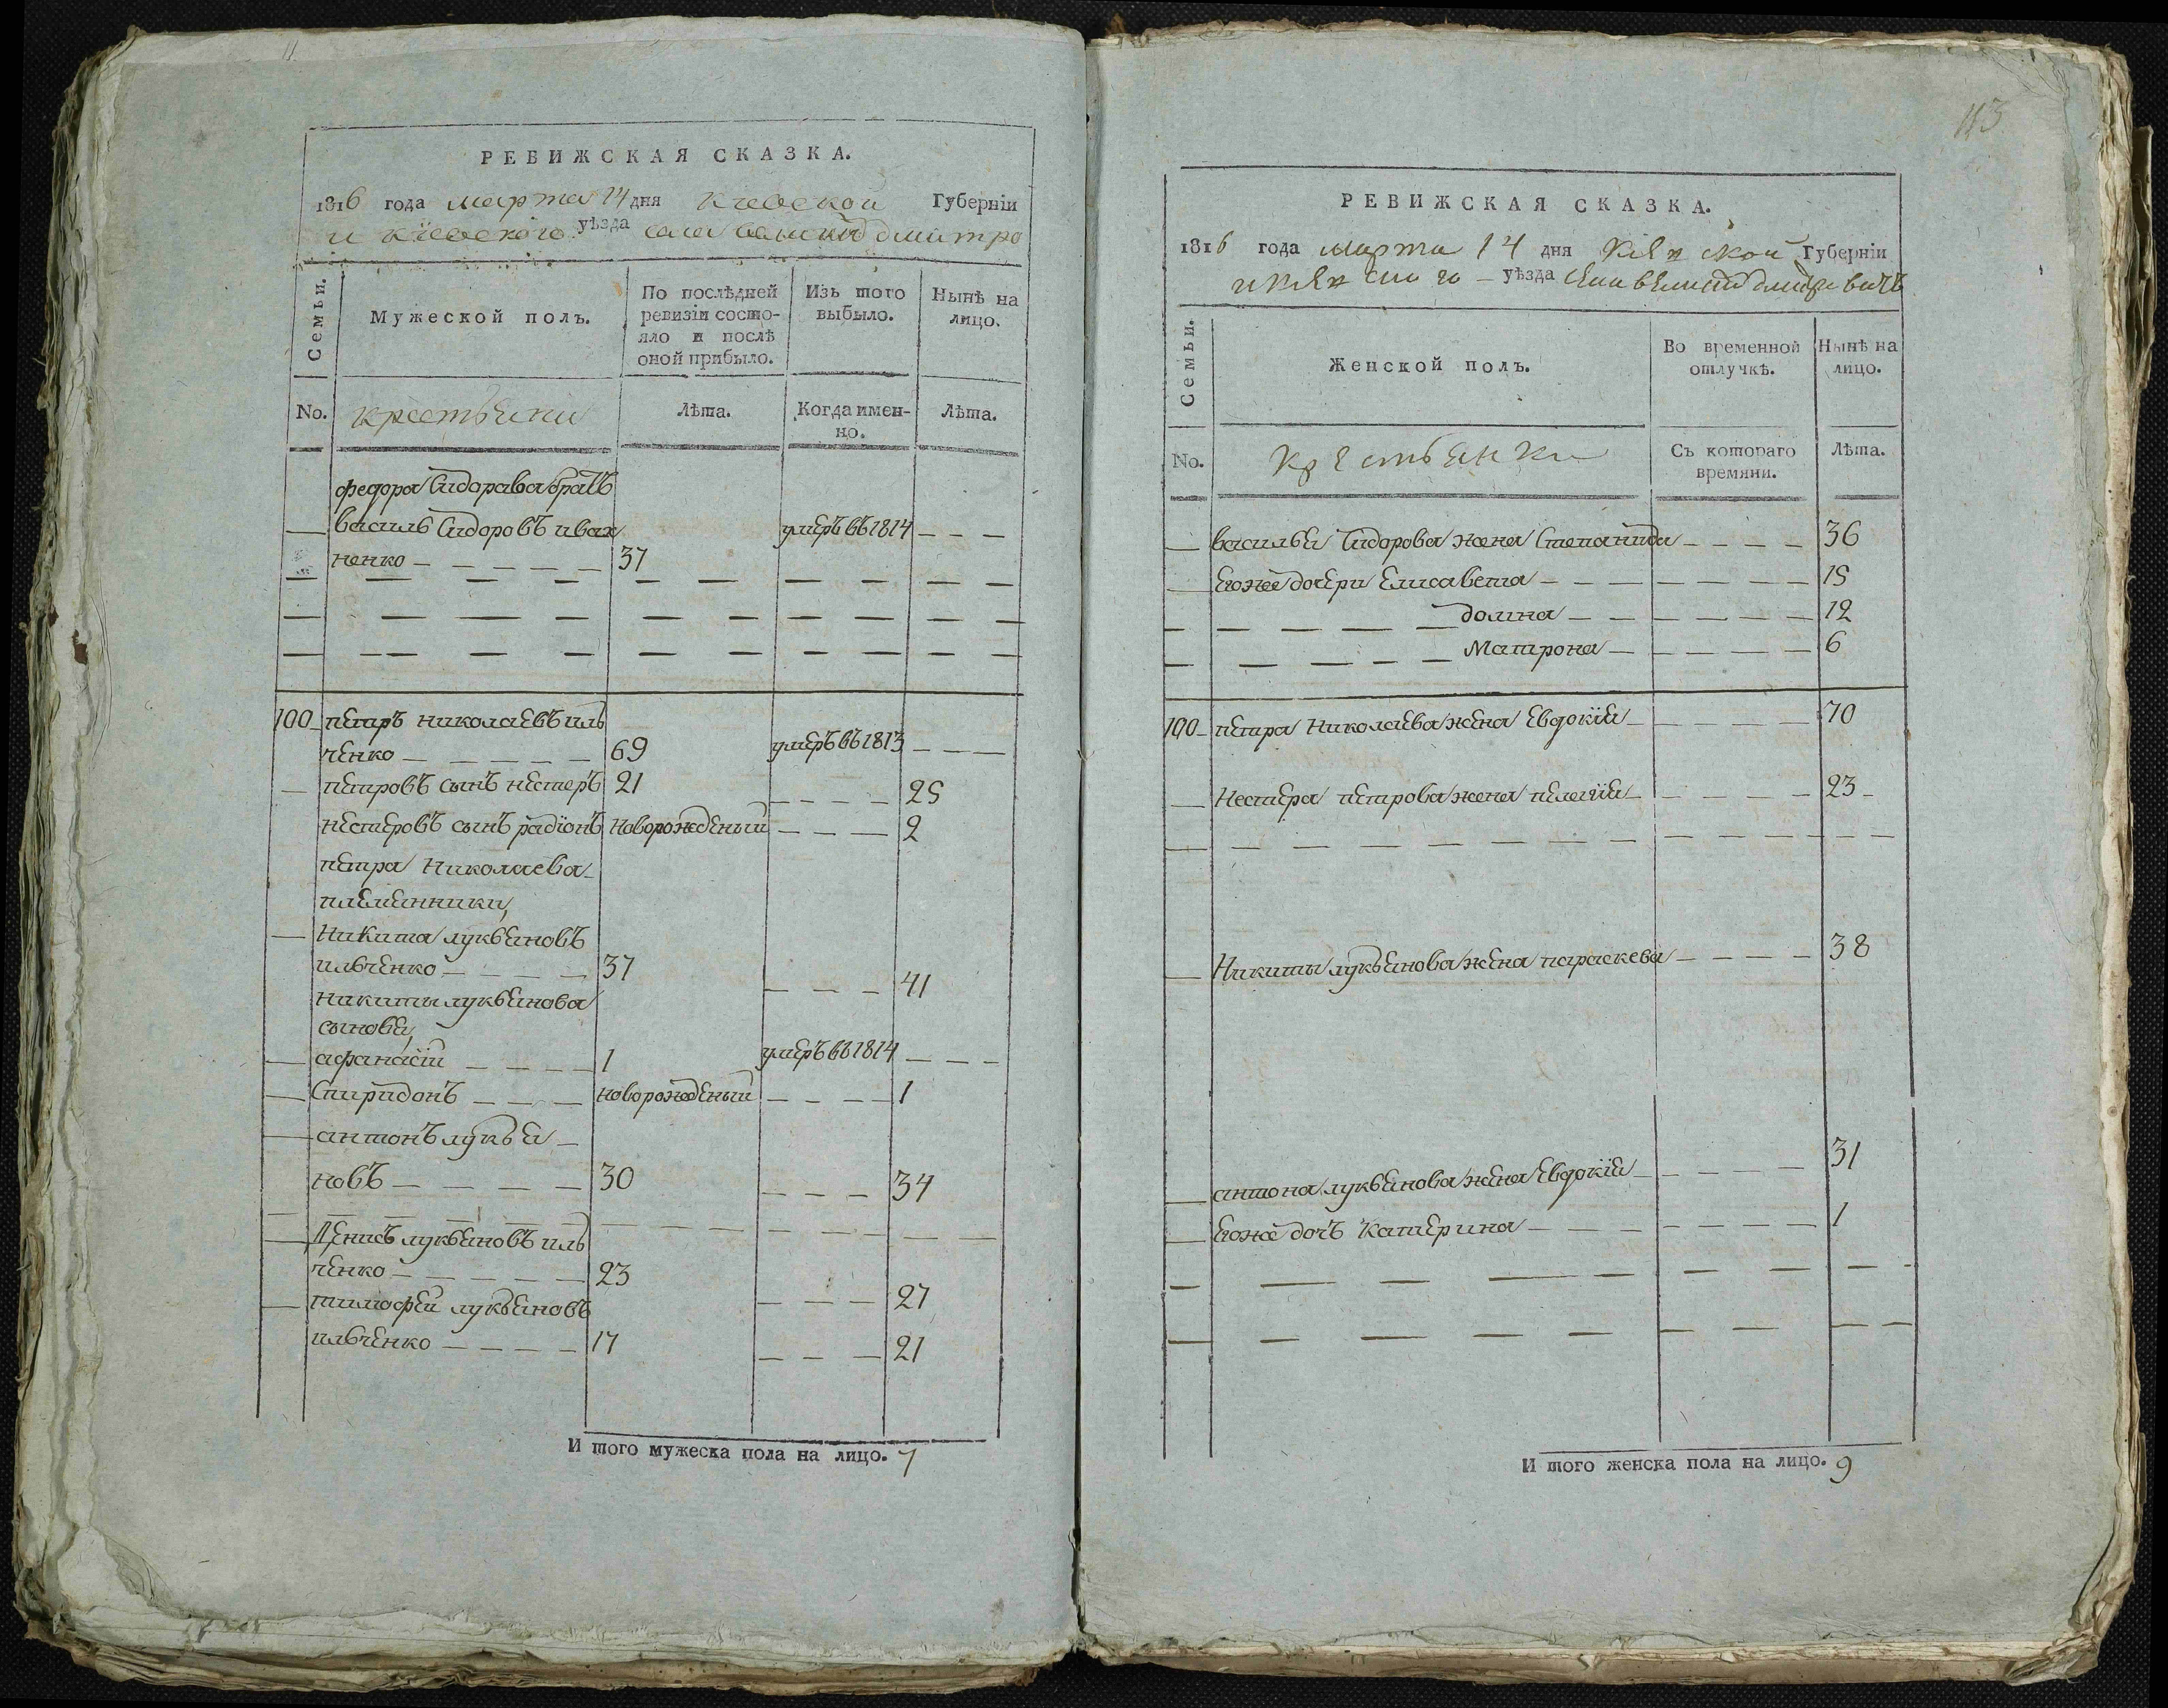 РЕВИЖСКАЯ СКАЗКА.
1816 года марта 14 дня Кіевской Губерніи
и Кіевского уѣзда села дмитро
Семьи.
Мужеской полъ.
По послѣдней ревизіи состояло и послѣ оной прибыло.
Изъ того выбыло.
Нынѣ на лицо.
No.
крестьяни
Лѣта.
Когда именно.
Лѣта.
федора Сидорава братъ
— василь Сидоровъ ивах умеръ въ 1814 — — —
ненко — — — — — 37
100 петръ николаевъ иль
ченко — — — — — 69 умеръ въ 1813 — — —
— петровъ сынъ нестеръ 21 — — — — 25
нестеровъ сынъ радіонъ новорожденый — — — 2
петра Николаева
племянники,
— никита лукьяновъ
ильченко — — — — 37 — — — 41
никиты лукьянова
сыновья,
— афанасій — — — — 1 умеръ въ 1814 — — —
— Спиридонъ — — — новорожденый — — — — 1
— антонъ лукья —
новъ — — — — 30 — — — 34
— Денисъ лукьяновъ иль
ченко — — — — — 23 — — — 27
— тимофей лукьяновъ
ильченко — — — — 17 — — — 21
И того мужеска пола на лицо. 7
113
РЕВИЖСКАЯ СКАЗКА.
1816 года марта 14 дня Кіевской Губерніи
и Кіевского — уѣзда дмитровичъ
Семьи.
Женской полъ.
Во временной отлучкѣ.
Нынѣ на лицо.
No.
крестьянки
Съ котораго времяни.
Лѣта.
— василья Сидорова жена Степанида — — — — 36
— Егоже дочери Елисавета — — — — — — 15
домна — — — — — — 12
Матрона — — — — — 6
100 — петра Николаева жена Евдокія — — — — — 70
— Нестера петрова жена пелагія — — — — — 23 —
— Никиты лукьянова жена параскева — — — — 38
— антона лукьянова жена Евдокія — — — — — 31
— Егоже дочь Катерина — — — — — — — 1
И того женска пола на лицо. 9